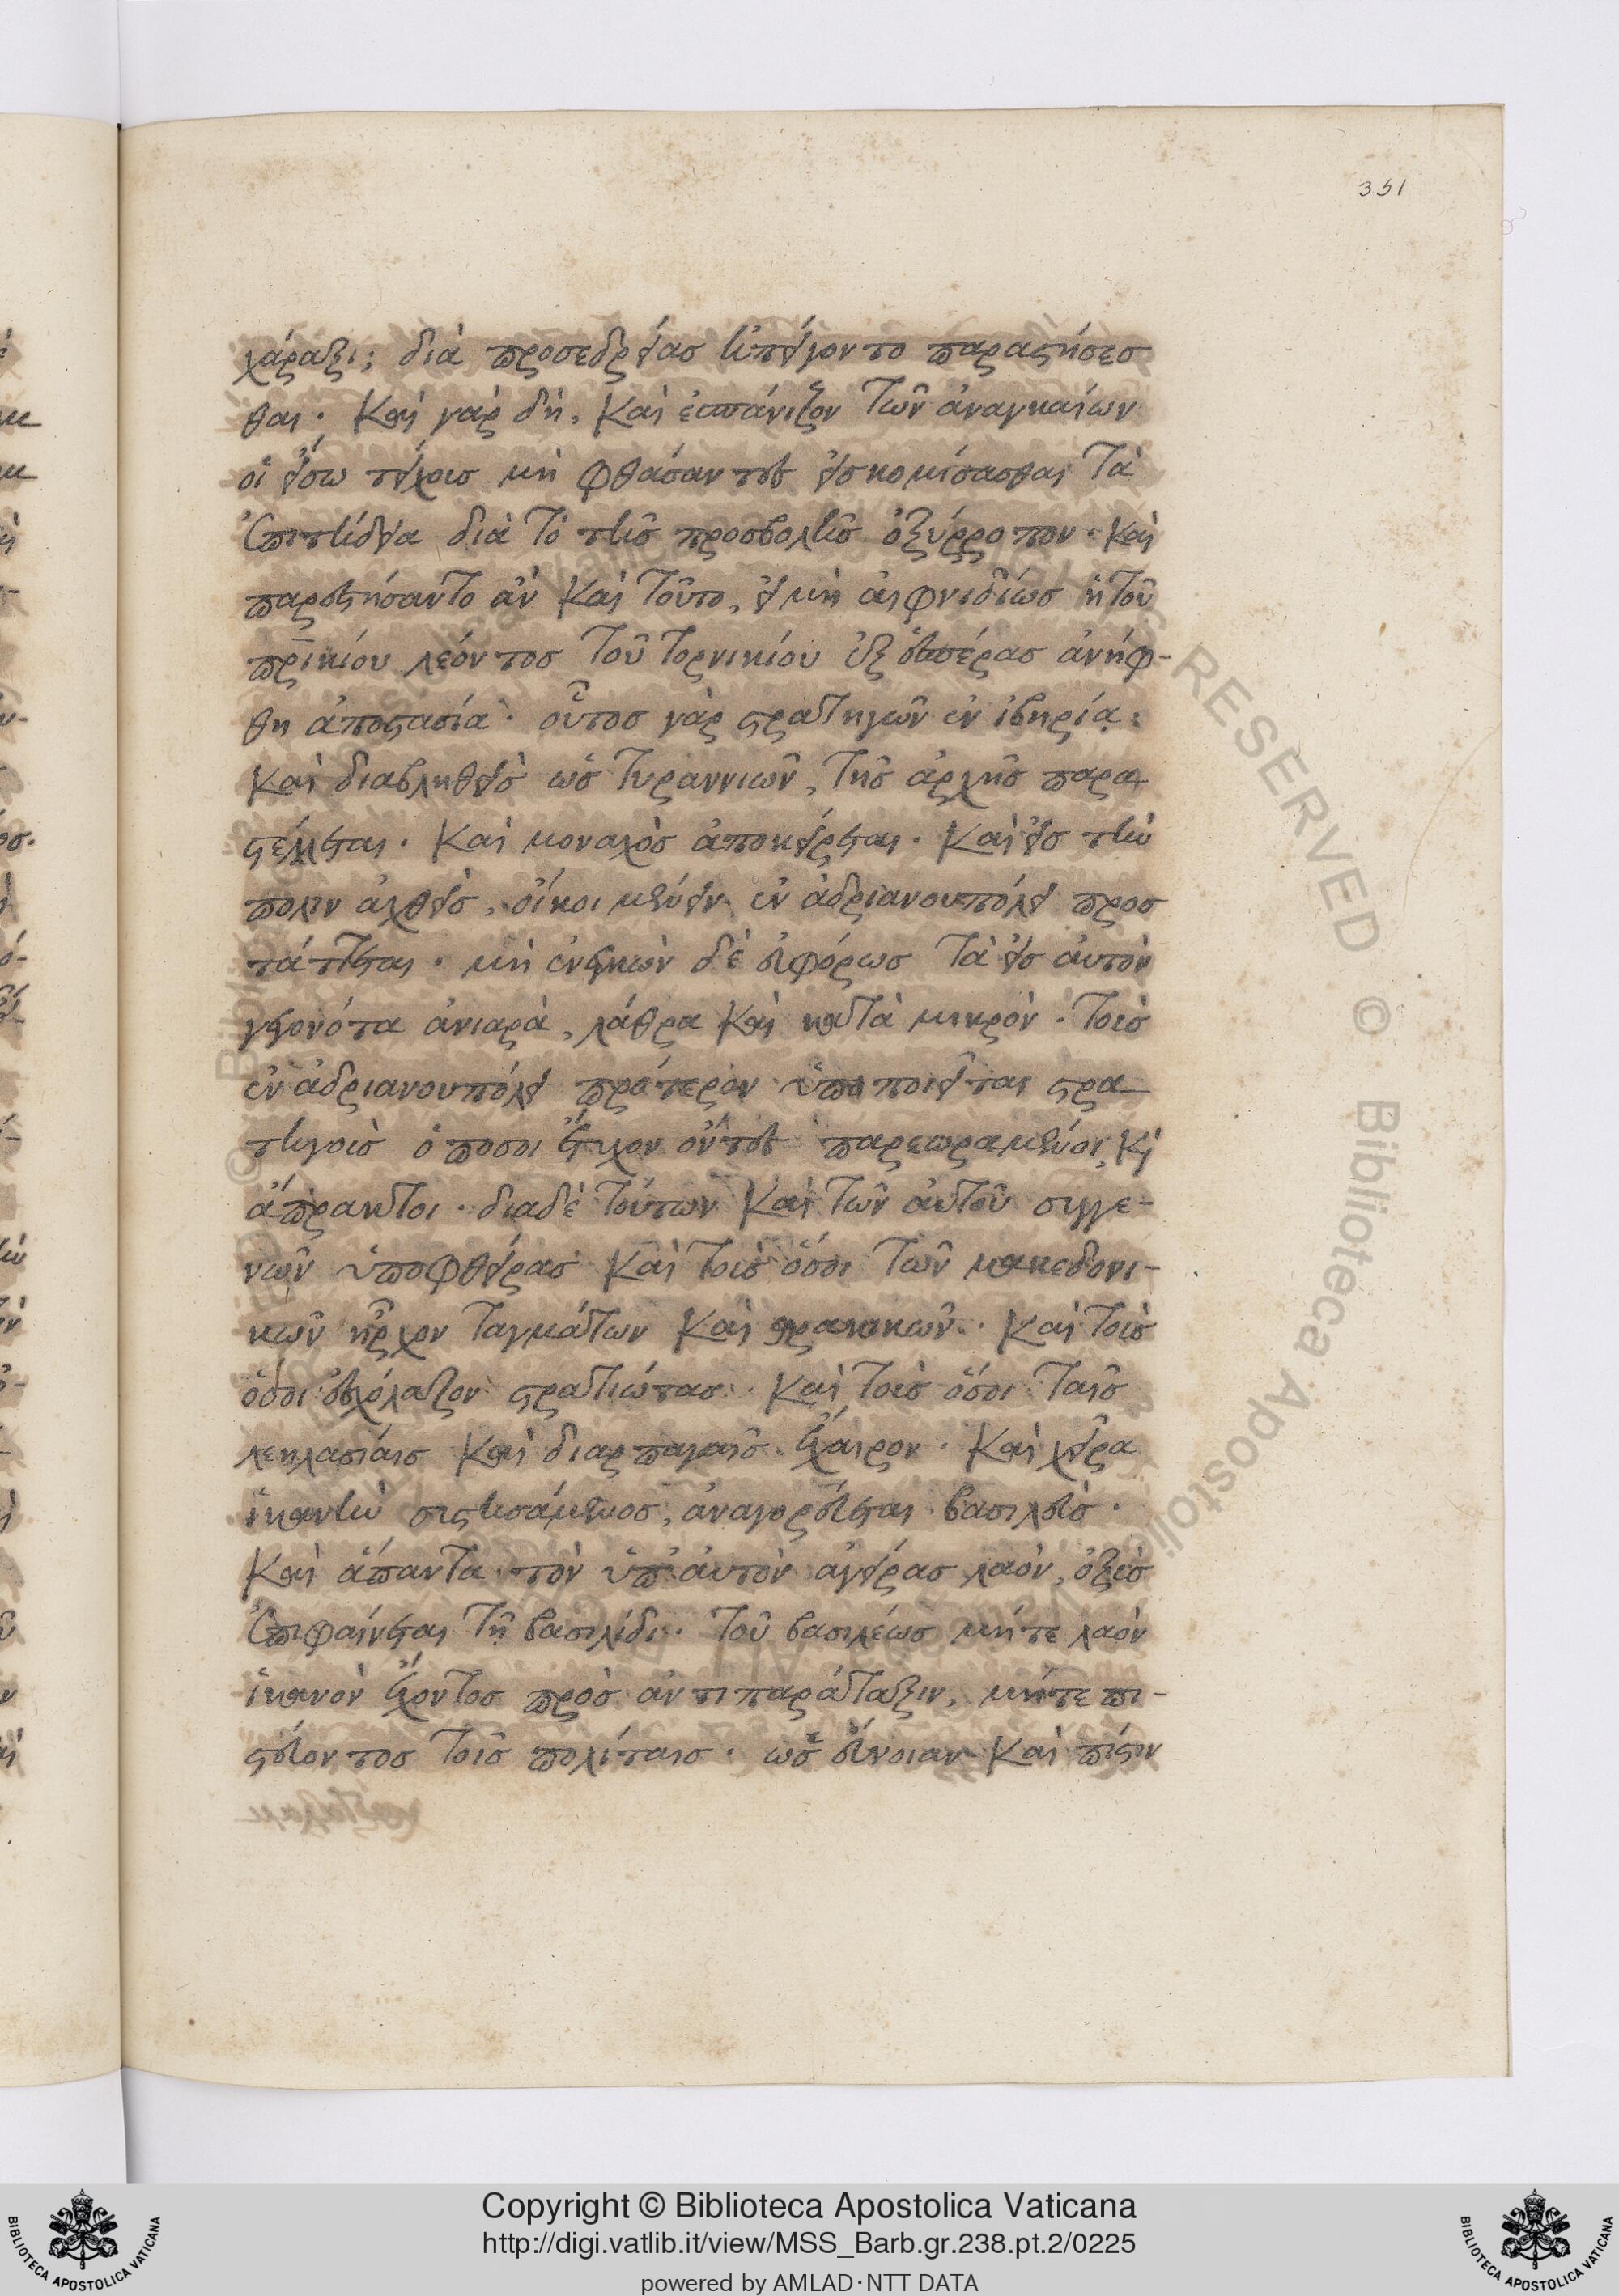 351
χάραξι; διὰ προσεδρείας ἠπείγοντο παραστήσεσ
θαι. Καὶ γὰρ δὴ, Καὶ ἐσπάνιζον τῶν ἀναγκαίων
οἱ εἴσω τείχους μὴ φθάσαντες εἰσκομίσασθαι τὰ
ἐπιτήδεια διὰ τὸ τῆς προσβολῆς ὀξύρροπον. καὶ
παρεστήσαντο ἂν καὶ τοῦτο, εἰ μὴ αἰφνιδίως ἡ τοῦ
πρικίου λέοντος τοῦ τορνικίου ἐξ ἑσπέρας ἀνήφ-
θη ἀποστασία. οὗτος γὰρ στρατηγῶν ἐν ἰβηρίᾳ:
καὶ διαβληθεὶς ὡς τυραννιῶν, τῆς ἀρχῆς παρα
στέλλεται. καὶ μοναχὸς ἀποκείρεται. καὶ εἰς τὴν
πόλιν ἀχθεὶς, οἴκοι μένειν ἐν ἀδριανουπόλει προσ
τάττεται. μὴ ἐνεγκὼν δὲ εὐφόρως τὰ εἰς αὐτὸν
γεγονότα ἀνιαρὰ, λάθρα καὶ κατὰ μικρὸν. τοὺς
ἐν ἀδριανουπόλει πρότερον ὑποποιεῖται στρα
τηγοὺς ὁπόσοι ἔτυχον ὄντες παρεωραμένοι, κὶ
ἄπρακτοι. διαδὲ τούτων καὶ τῶν αὐτοῦ συγγε-
νῶν ὑποφθείρας καὶ τοὺς ὅσοι τῶν μακεδονι-
κῶν ἦρχον ταγμάτων καὶ θρακικῶν. καὶ τοὺς
ὅσοι ἐσχόλαζον στρατιώτας. καὶ τοὺς ὅσοι ταῖς
λεηλασίαις καὶ διαρπαγαῖς ἔχαιρον. καὶ χεῖρα
ἱκανὴν συστησάμενος, ἀναγορεύεται βασιλεὺς.
καὶ ἅπαντα τὸν ὑπ' αὐτὸν ἀγείρας λαὸν, ὀξὺς
ἐπιφαίνεται τῇ βασιλίδι. τοῦ βασιλέως μήτε λαὸν
ἱκανὸν ἔχοντος πρὸς ἀντιπαράταξιν, μήτε πι-
στεύοντος τοῖς πολίταις. ὡς εὔνοιαν καὶ πίστιν
Copyright © Biblioteca Apostolica Vaticana
http://digi.vatlib.it/view/MSS_Barb.gr.238.pt.2/0225
powered by AMLAD·NTT DATA
BIBLIOTECA APOSTOLICA VATICANA
BIBLIOTECA APOSTOLICA VATICANA